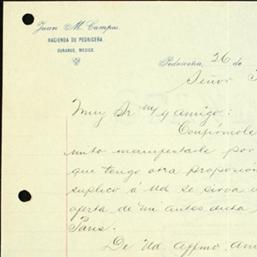 Juan M. Campos.
HACIENDA DE PEDRICEÑA
DURANGO, MEXICO.
Pedriceña, 26 de
Señor
Muy Sr. mío y amigo:
Confirmole
manifestarle por
que tengo otra proposición
suplico a Ud se sirva
oferta de mi antes dicha
Paris.
De Ud. Affmo. am